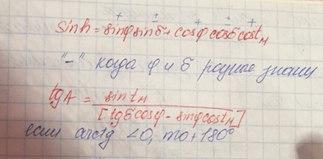 sinh = sinφ sinδ + cosφ cosδ cos tм
"-" когда φ и δ разные знаки
tgA = sin tм / [tgδ cosφ - sinφ cos tм]
если arctg < 0, то +180°